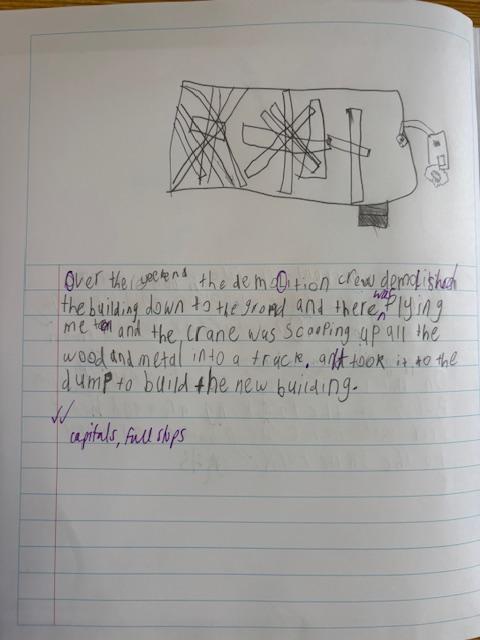 Over the weekend the demolition crew demolished
the building down to the grond and there was flying
meten and the crane was scooping up all the
wood and metal into a track. It took it to the
dump to build the new building.
capitals, full stops